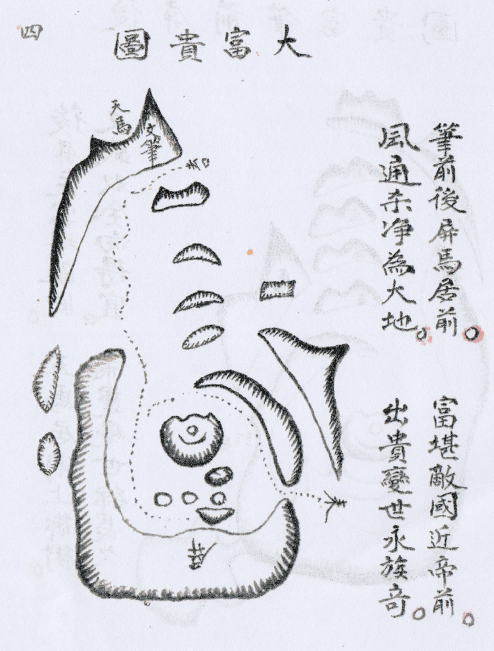 大富貴圖
四
筆前後屏馬居前。
富堪敵國近帝前。
風通杀净為大地。
出貴變世永族奇。
天馬
文筆